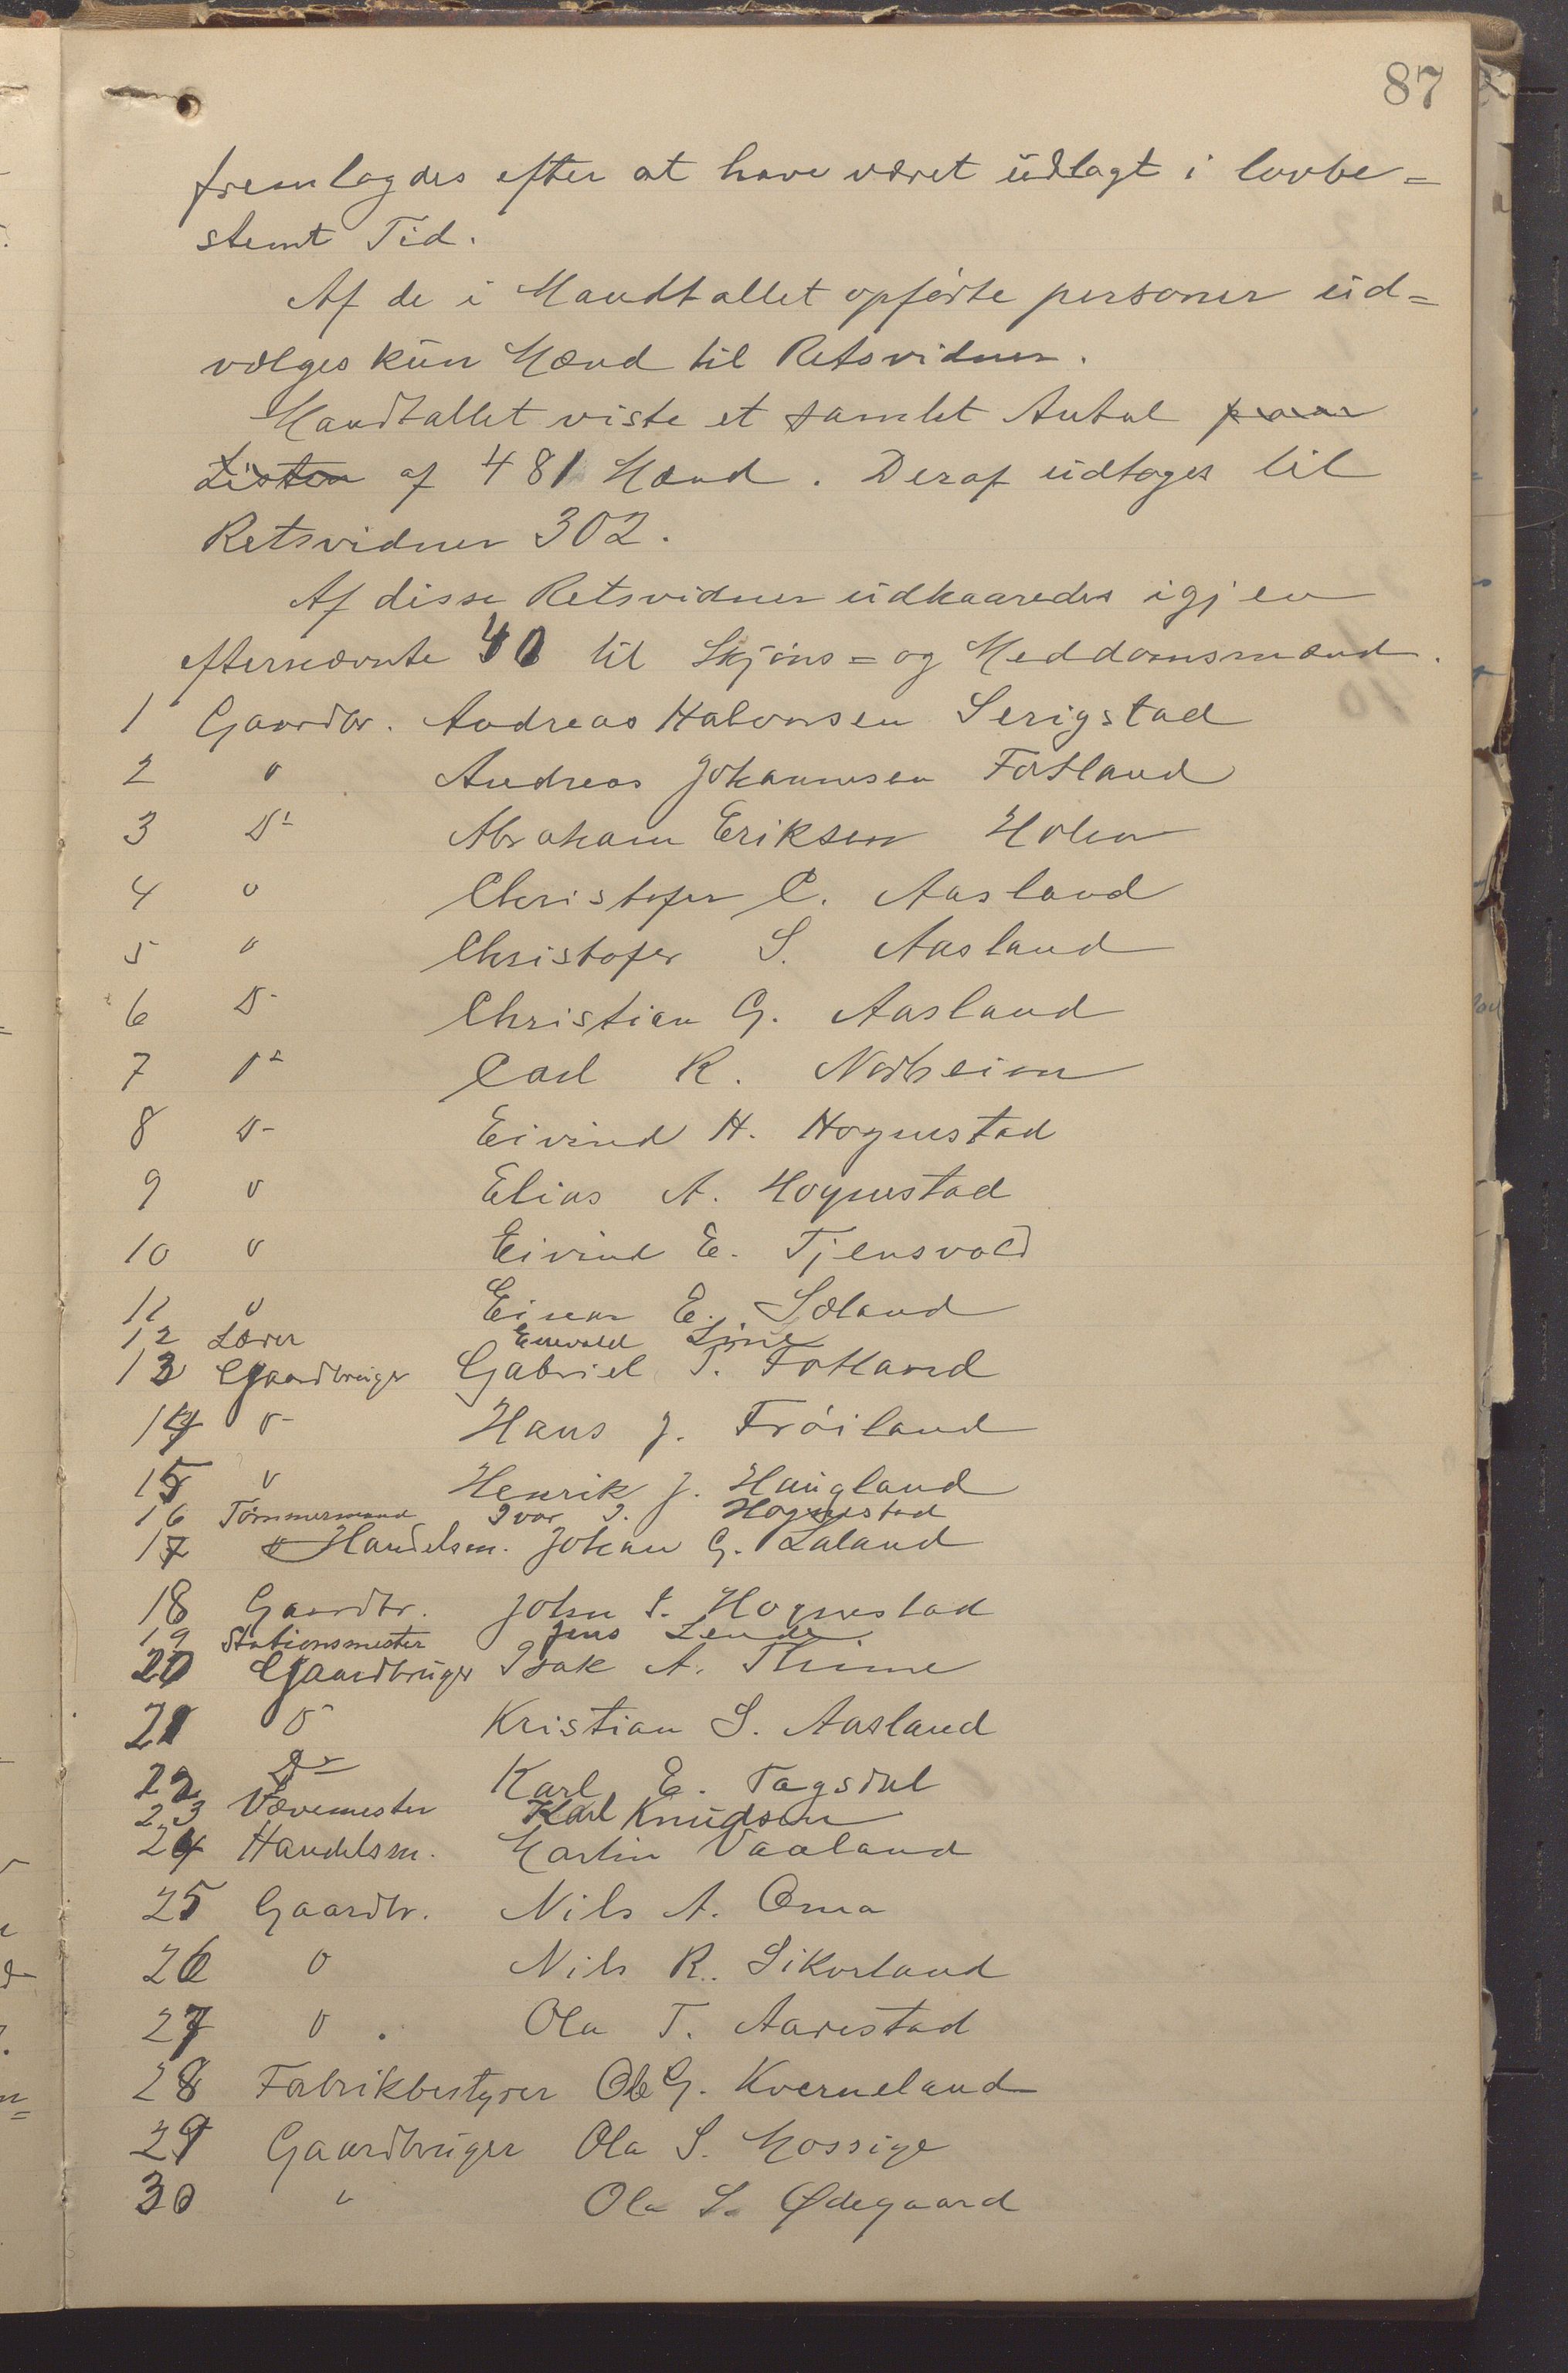 87
fremlagdes efter at have været udlagt i lovbe=
stemt Tid.
Af de i Mandtallet opførte personer ud=
vælges kun Mænd til Retsvidner.
Mandtallet viste et samlet Antal paa
Listen af 481 Mænd. Deraf udtoges til
Retsvidner 302.
Af disse Retsvidner udkaaredes igjen
efternævnte 40 til Skjøns= og Meddomsmænd.
1 Gaardbr. Andreas Halvorsen Serigstad
2 " Andreas Johannesen Fotland
3 Do Abraham Eriksen Holen
4 " Christofer C. Aasland
5 " Christofer S. Aasland
6 D- Christian G. Aasland
7 Do Carl R. Norheim
8 D- Eivind H. Hognestad
9 " Elias A. Hognestad
10 " Eivind E. Tjensvold
11 " Einar E. Sæland
12 Lærer Enevald Line
13 Gaardbruger Gabriel T. Fotland
14 " Hans J. Frøiland
15 " Henrik J. Haugland
16 Tømmermand Ivar I. Hognestad
17 Handelsm. Johan G. Laland
18 Gaardbr. John I. Hognestad
19 Stationsmester Jens Lende
20 Gaardbruger Isak A. Thime
21 " Kristian S. Aasland
22 Do Karl E. Tagsdal
23 Vævemester Karl Knudsen
24 Handelsm. Martin Vaaland
25 Gaardbr. Nils A. Oma
26 " Nils R. Sikvaland
27 " Ola T. Aarestad
28 Fabrikbestyrer Ole G. Kverneland
29 Gaardbruger Ola S. Mossige
30 " Ola S. Ødegaard